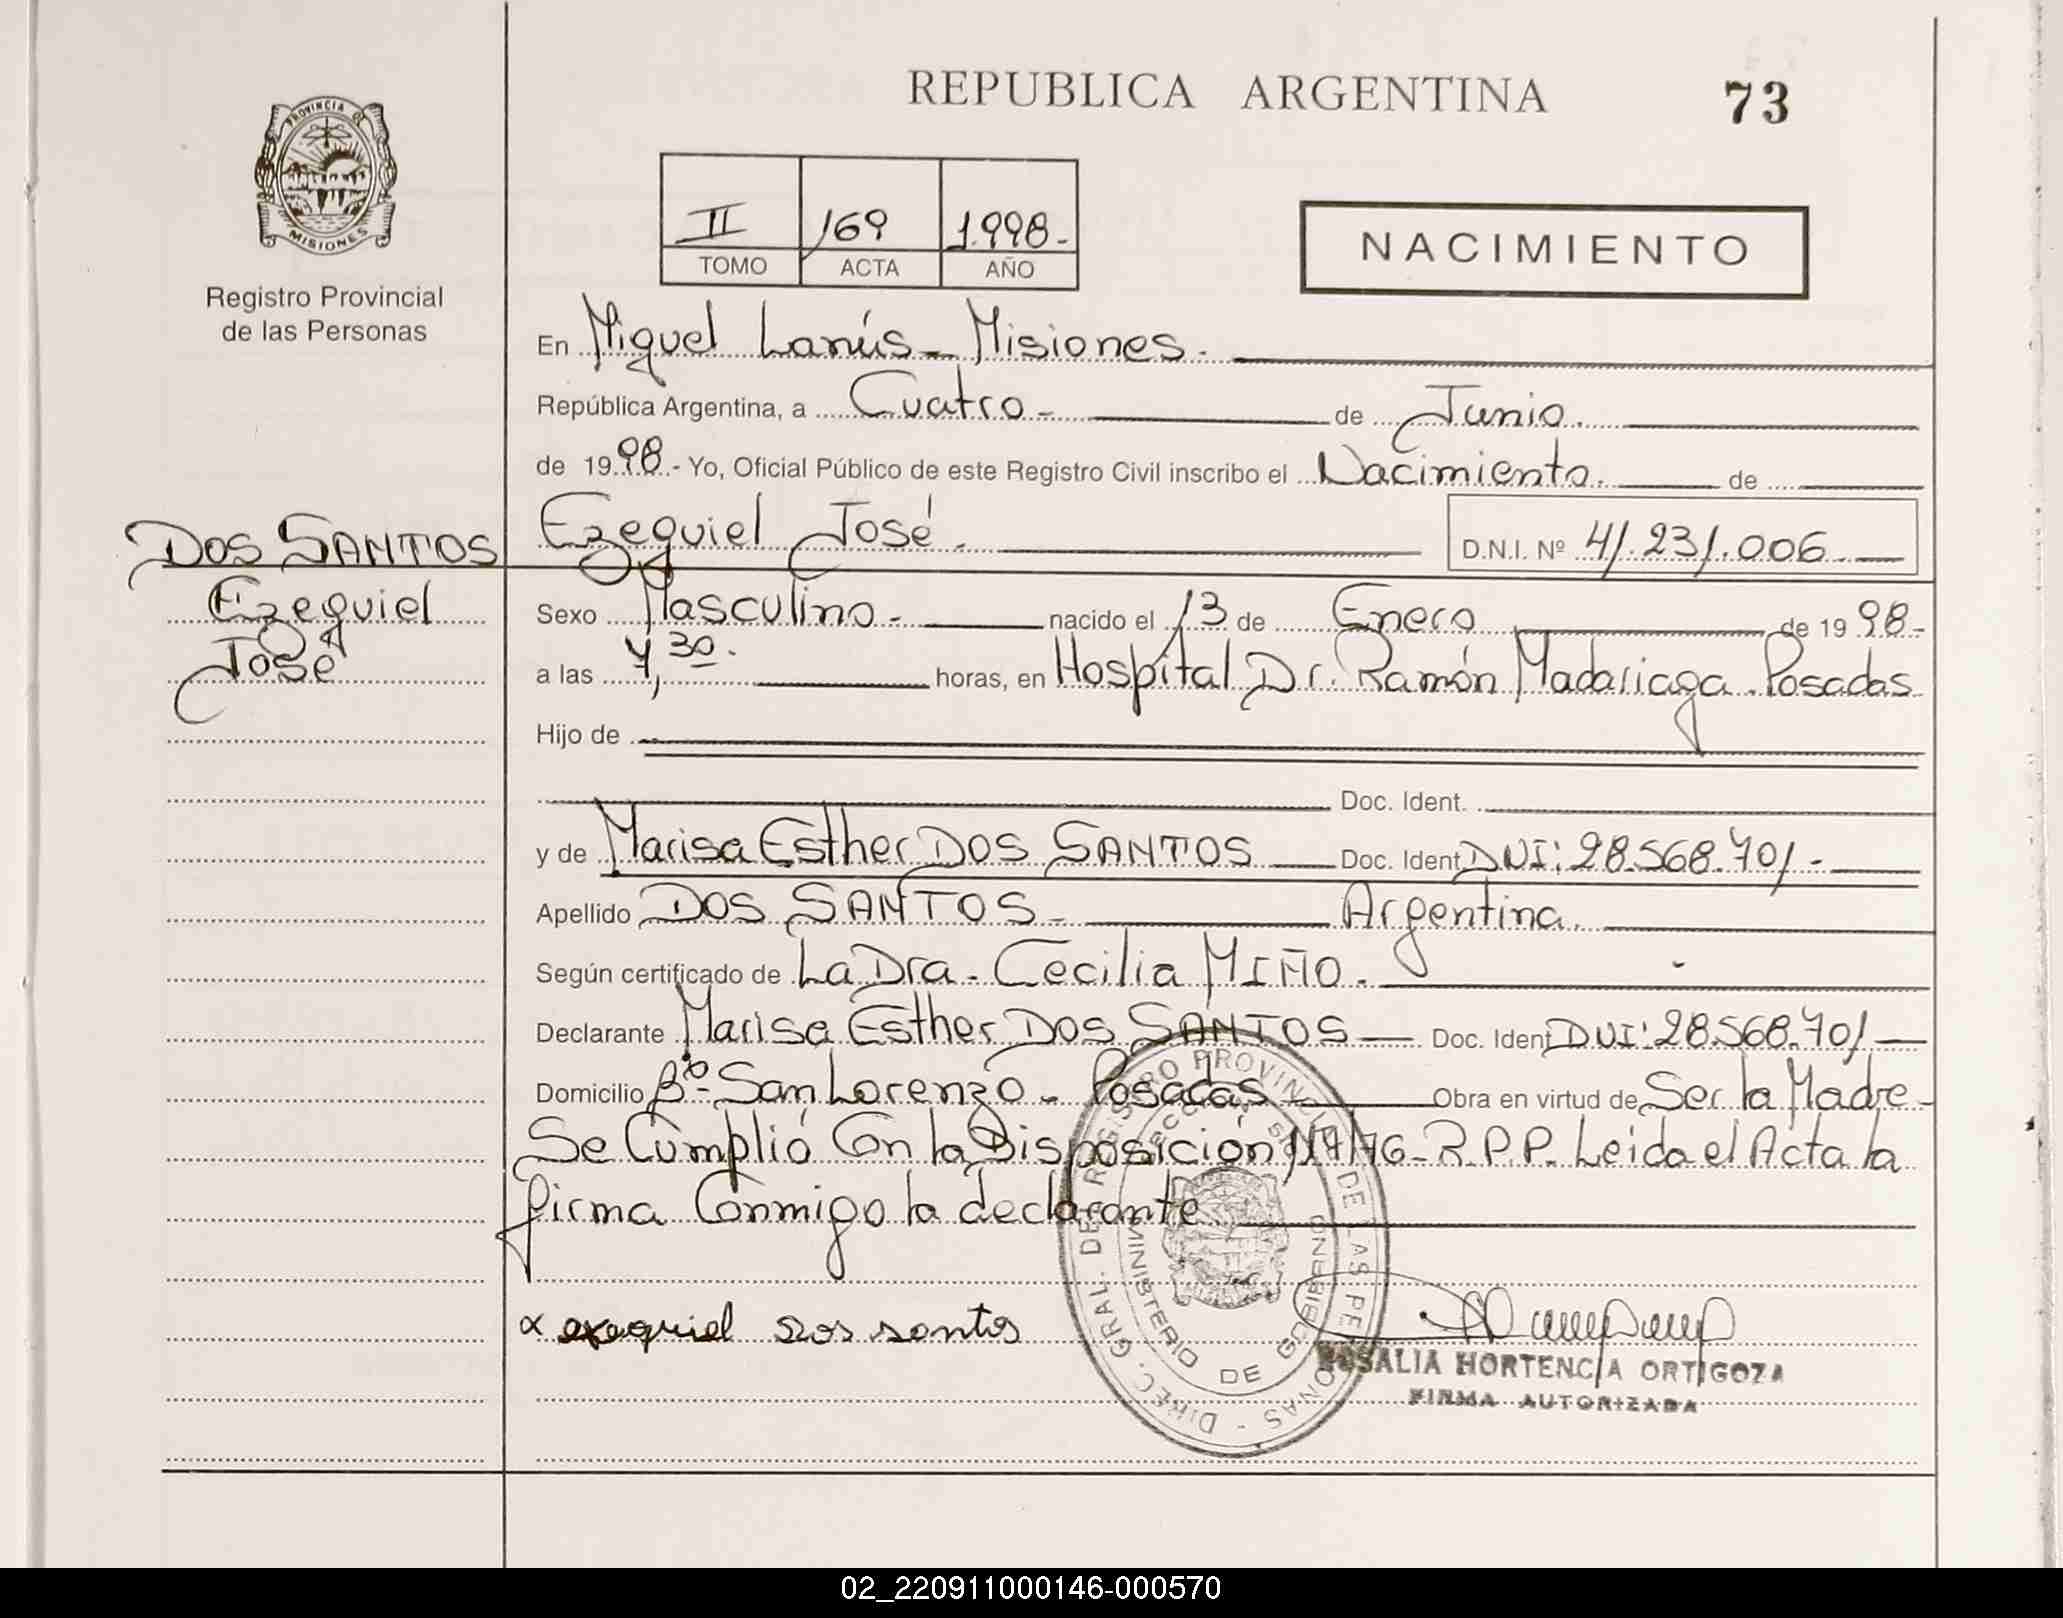 REPUBLICA ARGENTINA
73
PROVINCIA DE
MISIONES
Registro Provincial
de las Personas
II 169 1.998-
TOMO ACTA AÑO
NACIMIENTO
En Miguel Lanús - Misiones.
República Argentina, a Cuatro - de Junio.
de 1998 - Yo, Oficial Público de este Registro Civil inscribo el Nacimiento. de
DOS SANTOS
Ezequiel
José
Ezequiel José.
D.N.I. Nº 41.231.006
Sexo Masculino - nacido el 13 de Enero de 1998-
a las 7,30. horas, en Hospital Dr. Ramón Madariaga. Posadas
Hijo de
Doc. Ident.
y de Marisa Esther DOS SANTOS Doc. Ident DNI: 28.568.701-
Apellido DOS SANTOS - Argentina.
Según certificado de La Dra. Cecilia MIÑO.
Declarante Marisa Esther DOS SANTOS Doc. Iden DNI: 28.568.701
Domicilio Bº San Lorenzo - Posadas Obra en virtud de Ser la Madre-
Se Cumplió Con la Disposición 17/76-R.P.P. Leida el Acta la
firma Conmigo la declarante
DIREC. GRAL. DE REGISTRO PROVINCIAL DE LAS PERSONAS
MINISTERIO DE GOBIERNO
x exequiel dos santos
ROSALIA HORTENCIA ORTIGOZA
FIRMA AUTORIZADA
02_220911000146-000570